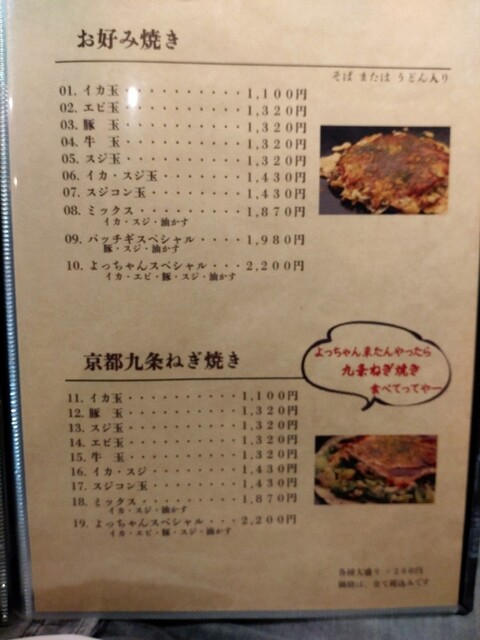 お好み焼き
そば または うどん入り
01. イカ玉・・・・・・・・・・1,100円
02. エビ玉・・・・・・・・・・1,320円
03. 豚 玉・・・・・・・・・・1,320円
04. 牛 玉・・・・・・・・・・1,320円
05. スジ玉・・・・・・・・・・1,320円
06. イカ・スジ玉・・・・・・・1,430円
07. スジコン玉・・・・・・・・1,430円
08. ミックス・・・・・・・・・1,870円
イカ・スジ・油かす
09. パッチギスペシャル・・・・1,980円
豚・スジ・油かす
10. よっちゃんスペシャル・・・2,200円
イカ・エビ・豚・スジ・油かす
京都九条ねぎ焼き
よっちゃん来たんやったら
九条ねぎ焼き
食べてってやー
11. イカ玉・・・・・・・・・・1,100円
12. 豚 玉・・・・・・・・・・1,320円
13. スジ玉・・・・・・・・・・1,320円
14. エビ玉・・・・・・・・・・1,320円
15. 牛 玉・・・・・・・・・・1,320円
16. イカ・スジ・・・・・・・・1,430円
17. スジコン玉・・・・・・・・1,430円
18. ミックス・・・・・・・・・1,870円
イカ・スジ・油かす
19. よっちゃんスペシャル・・・2,200円
イカ・エビ・豚・スジ・油かす
各種大盛り
価格は、全て税込みです